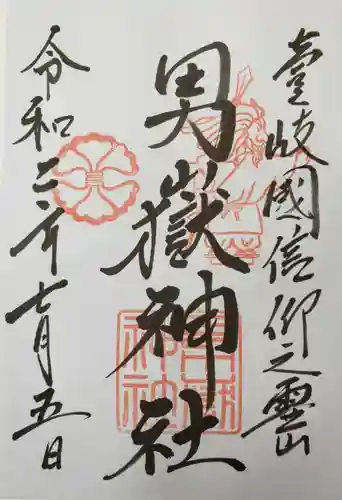 壹岐國信仰之靈山
男嶽神社
令和二年七月五日
男嶽神社